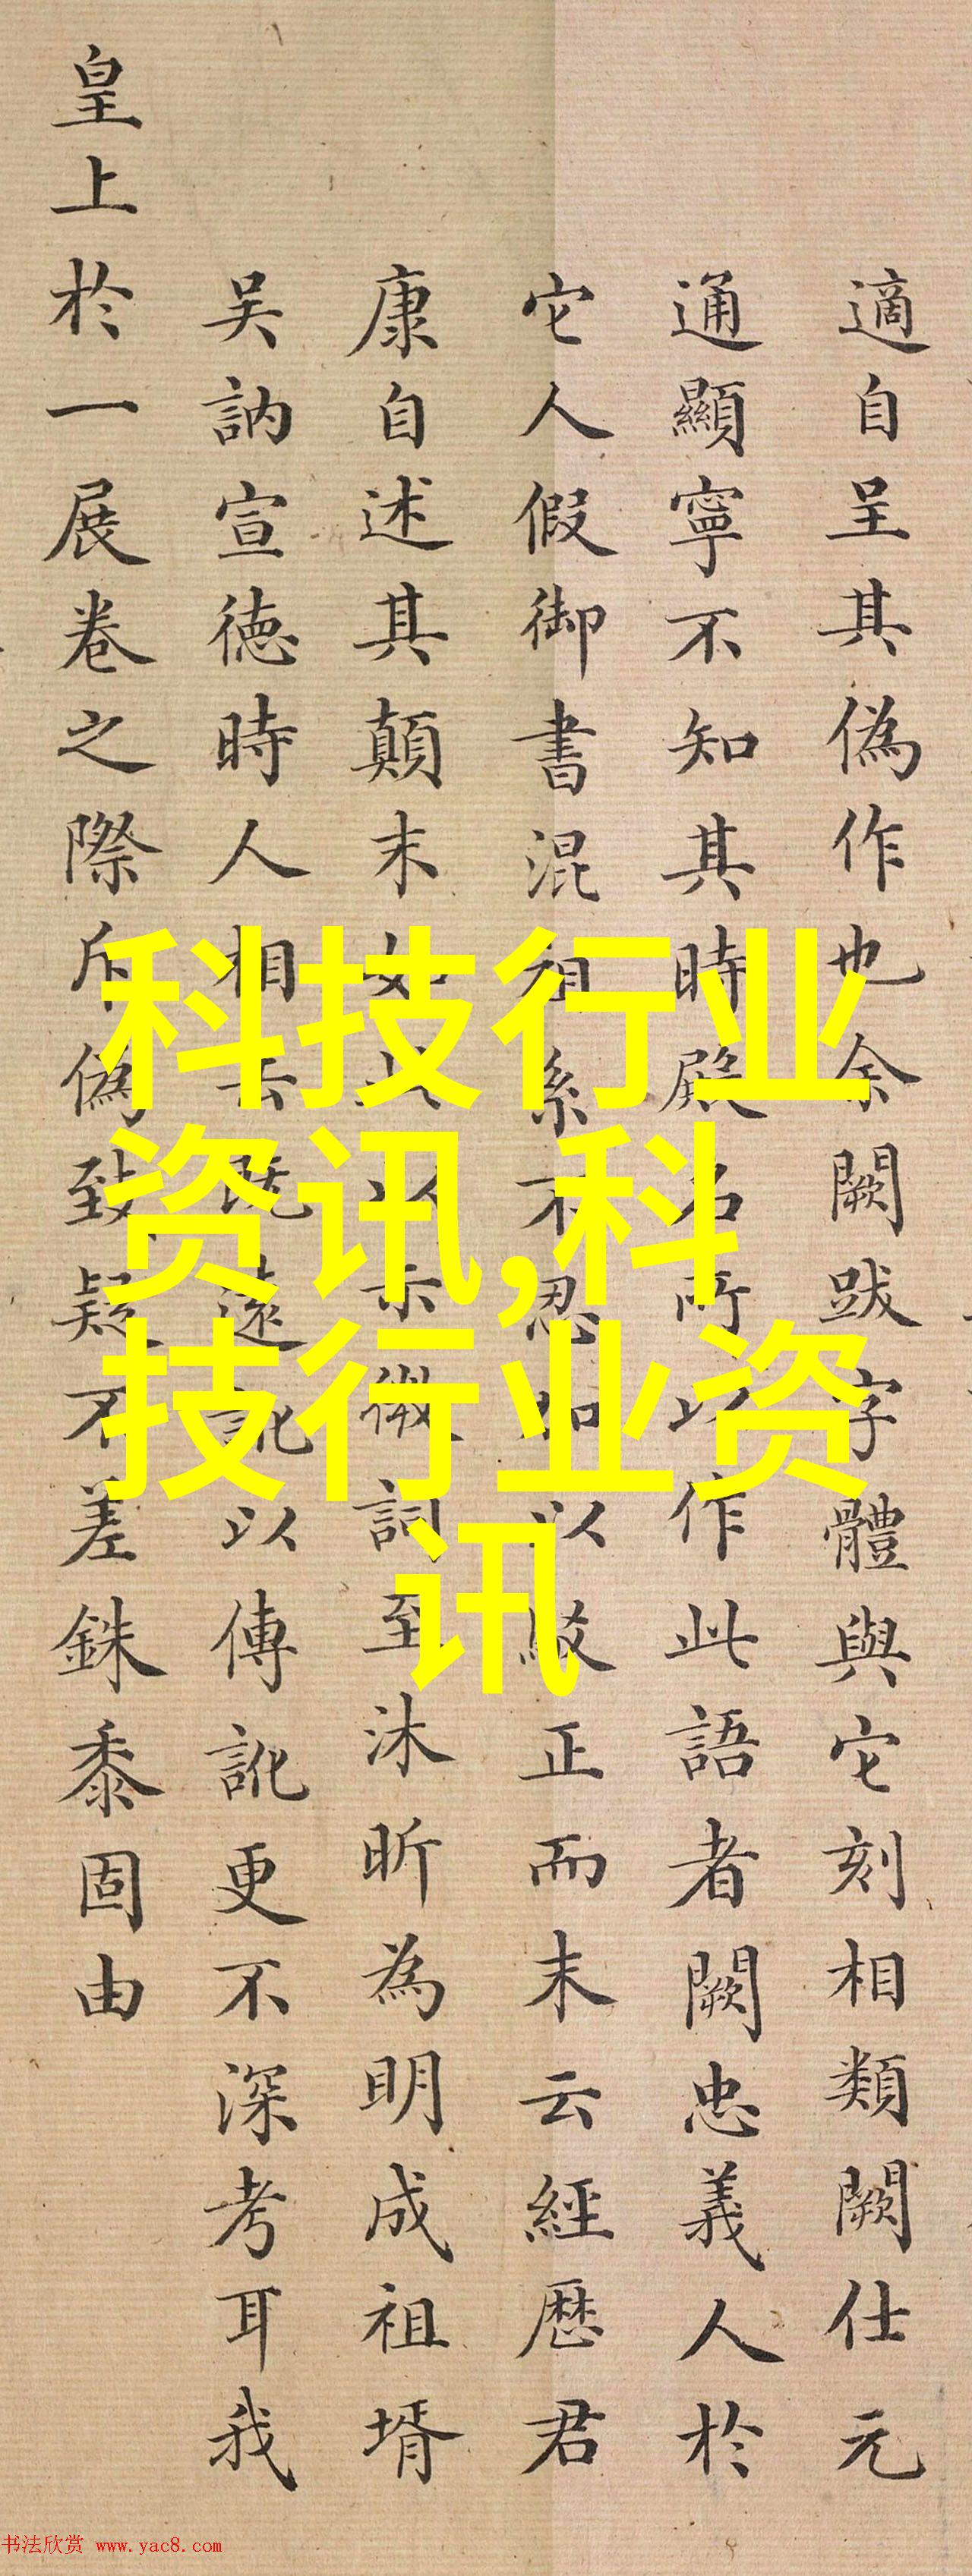 適自呈其偽作也余闕跋字體與它刻相類闕仕元
通顯寧不知其時殿名所以作此語者闕忠義人於
它人假御書混祖系不忍加以駁正而末云經歷君
康自述其顛末如此以示微詞至沐昕為明成祖壻
吳訥宣德時人相去既遠訛以傳訛更不深考耳我
皇上於一展卷之際斥偽致疑不差銖黍固由
科技行业
资讯,科
技行业资
讯
书法欣赏 www.yac8.com